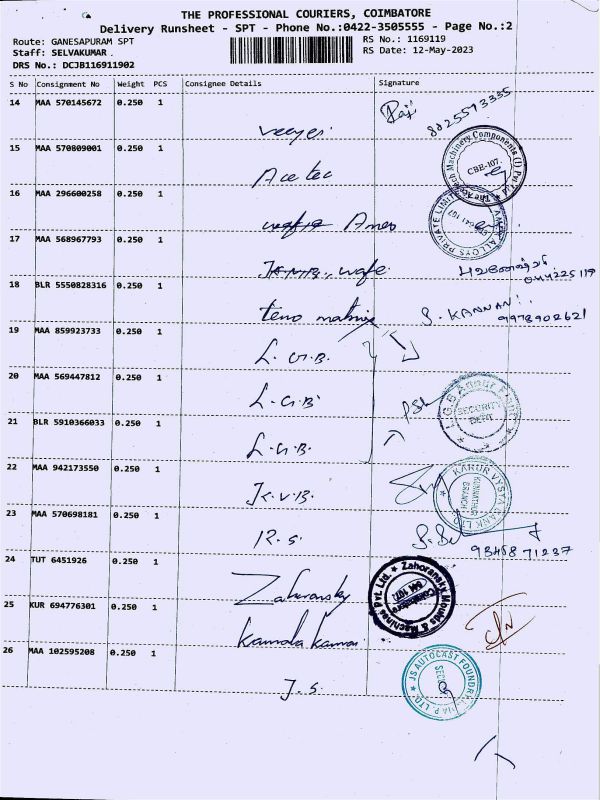 THE PROFESSIONAL COURIERS, COIMBATORE
Delivery Runsheet - SPT - Phone No.:0422-3505555 - Page No.:2
Route: GANESAPURAM SPT
RS No.: 1169119
Staff: SELVAKUMAR .
RS Date: 12-May-2023
DRS No.: DCJB116911902
S No Consignment No Weight PCS Consignee Details Signature
14 MAA 570145672 0.250 1 veeyes. Raji 8825593335
15 MAA 570809001 0.250 1 Ace tec
CBE-107.
16 MAA 296600258 0.250 1 Ames
17 MAA 568967793 0.250 1 wafe
18 BLR 5550828316 0.250 1 teno S. KANNAN. 9978902621
19 MAA 859923733 0.250 1 L.G.B.
20 MAA 569447812 0.250 1 L.G.B.
L.G.B SECURITY DEPT
21 BLR 5910366033 0.250 1 L.G.B.
22 MAA 942173550 0.250 1 K.V.B.
KARUR VYSYA BANK LTD BRANCH
23 MAA 570698181 0.250 1 R.S.
24 TUT 6451926 0.250 1 Zahoransky
Zahoransky Moulds & Machines Pvt. Ltd. Coimbatore 641 107
25 KUR 694776301 0.250 1 Kamala Kannan
26 MAA 102595208 0.250 1 J.S.
JS AUTOCAST FOUNDRY INDIA P. LTD.